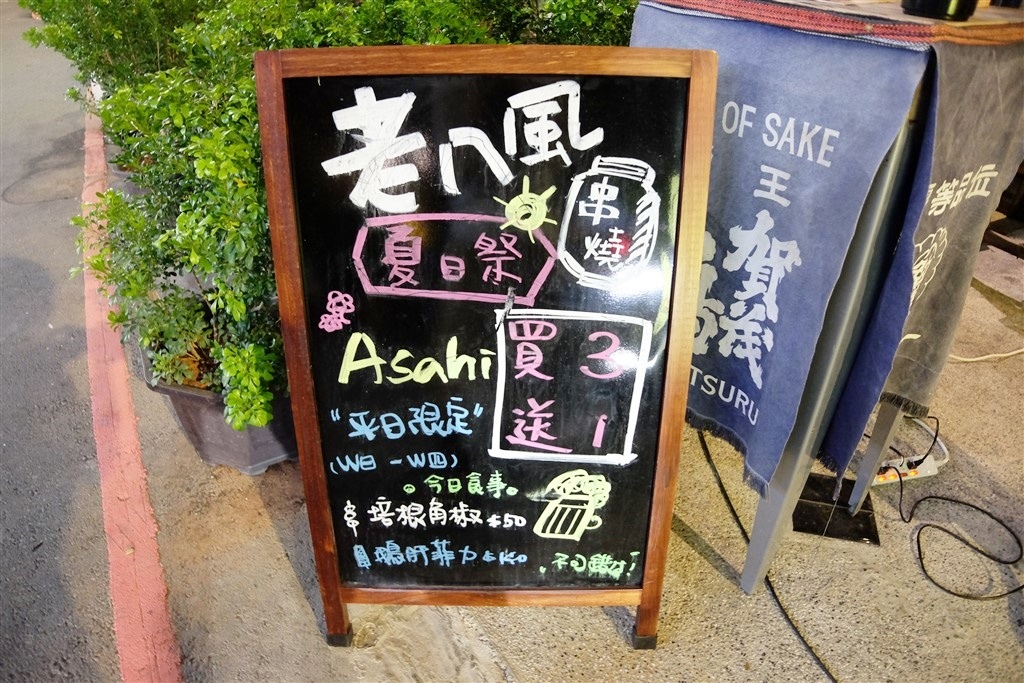 老八風
串燒
夏日祭
Asahi
買3
送1
"平日限定"
(W日-W四)
今日食事
培根角椒 $50
鵝肝菲力
不可錯過!
OF SAKE
王
賀茂
TSURU